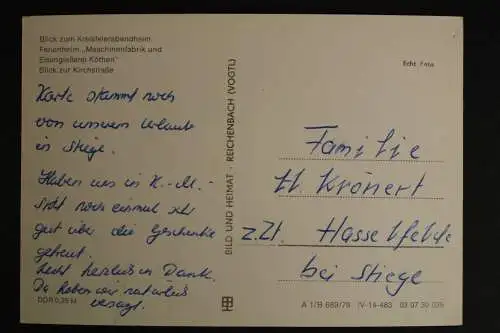 Blick zum Kreisfeierabendheim
Ferienheim „Maschinenfabrik und
Eisengießerei Köthen"
Blick zur Kirchstraße
Echt Foto
Karte stammt noch
von unserem Urlaub
in Stiege.
Haben uns in K.-M.-
Stdt noch einmal sehr
gut über die Geschenke
gefreut.
Recht herzlichen Dank.
Da haben wir natürlich
versagt.
DDR 0,35 M
BILD UND HEIMAT · REICHENBACH (VOGTL)
Familie
H. Krönert
z.Zt. Hasselfelde
bei Stiege
A 1/B 689/79 IV-14-483 03 07 30 039